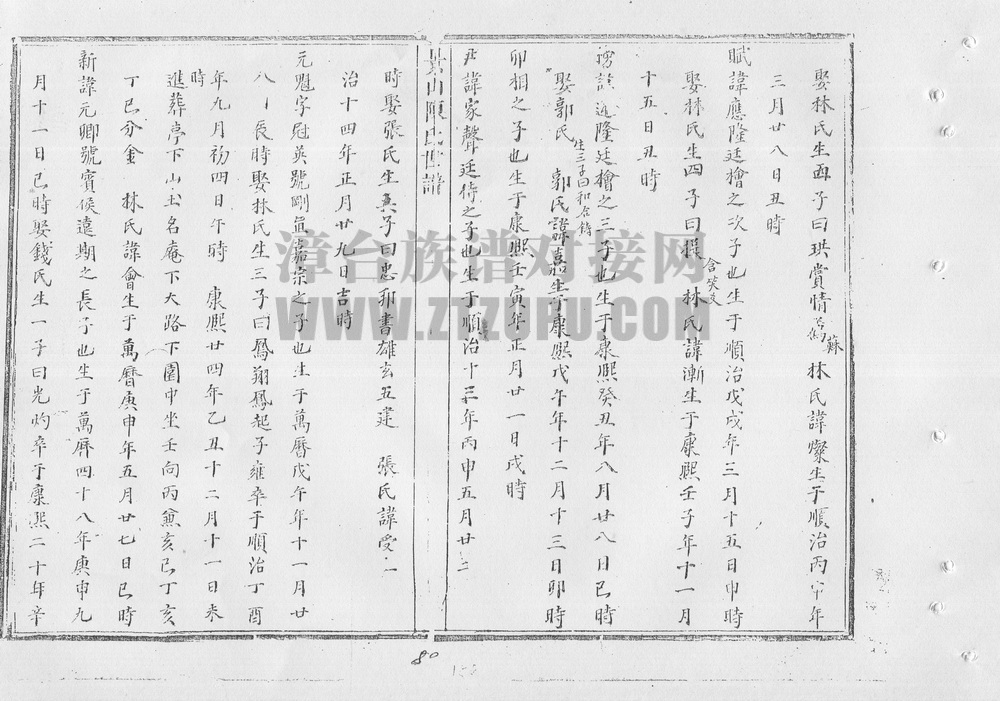 娶林氏生四子曰珙賞情蔿蘇 林氏諱燦生于順治丙申年
三月廿八日丑時
賦諱應隆廷檜之次子也生于順治戊戌年三月十五日申時
娶林氏生四子曰 林氏諱漸生于康熙壬子年十一月
十五日丑時
諱 隆廷檜之三子也生于康熙癸丑年八月廿八日巳時
娶郭氏 生三子曰和 郭氏諱 生于康熙戊午年十二月十三日卯時
卯楫之子也生于康熙壬寅年正月廿一日戌時
諱家聲廷侍之子也生于順治十三年丙申五月廿
山陳氏世譜
時娶張氏生 子曰忠卯書雄玄五建 張氏諱受
治十四年正月廿九日吉時
元魁字冠英號剛 嘉宗之子也生于萬曆戊午年十一月廿
八 辰時娶林氏生三子曰鳳翔鳳起子雍卒于順治丁酉
年九月初四日午時 康熙廿四年乙丑十二月十一日未
時
進葬亭下山土名庵下大路下圍中坐壬向丙兼亥巳丁亥
丁巳分金 林氏諱會生于萬曆庚申年五月廿七日巳時
新諱元卿號賓侯遠期之長子也生于萬曆四十八年庚申九
月十一日巳時娶錢氏生一子曰光灼卒于康熙二十年辛
漳台族谱对接网
WWW.ZTZUPU.COM
80